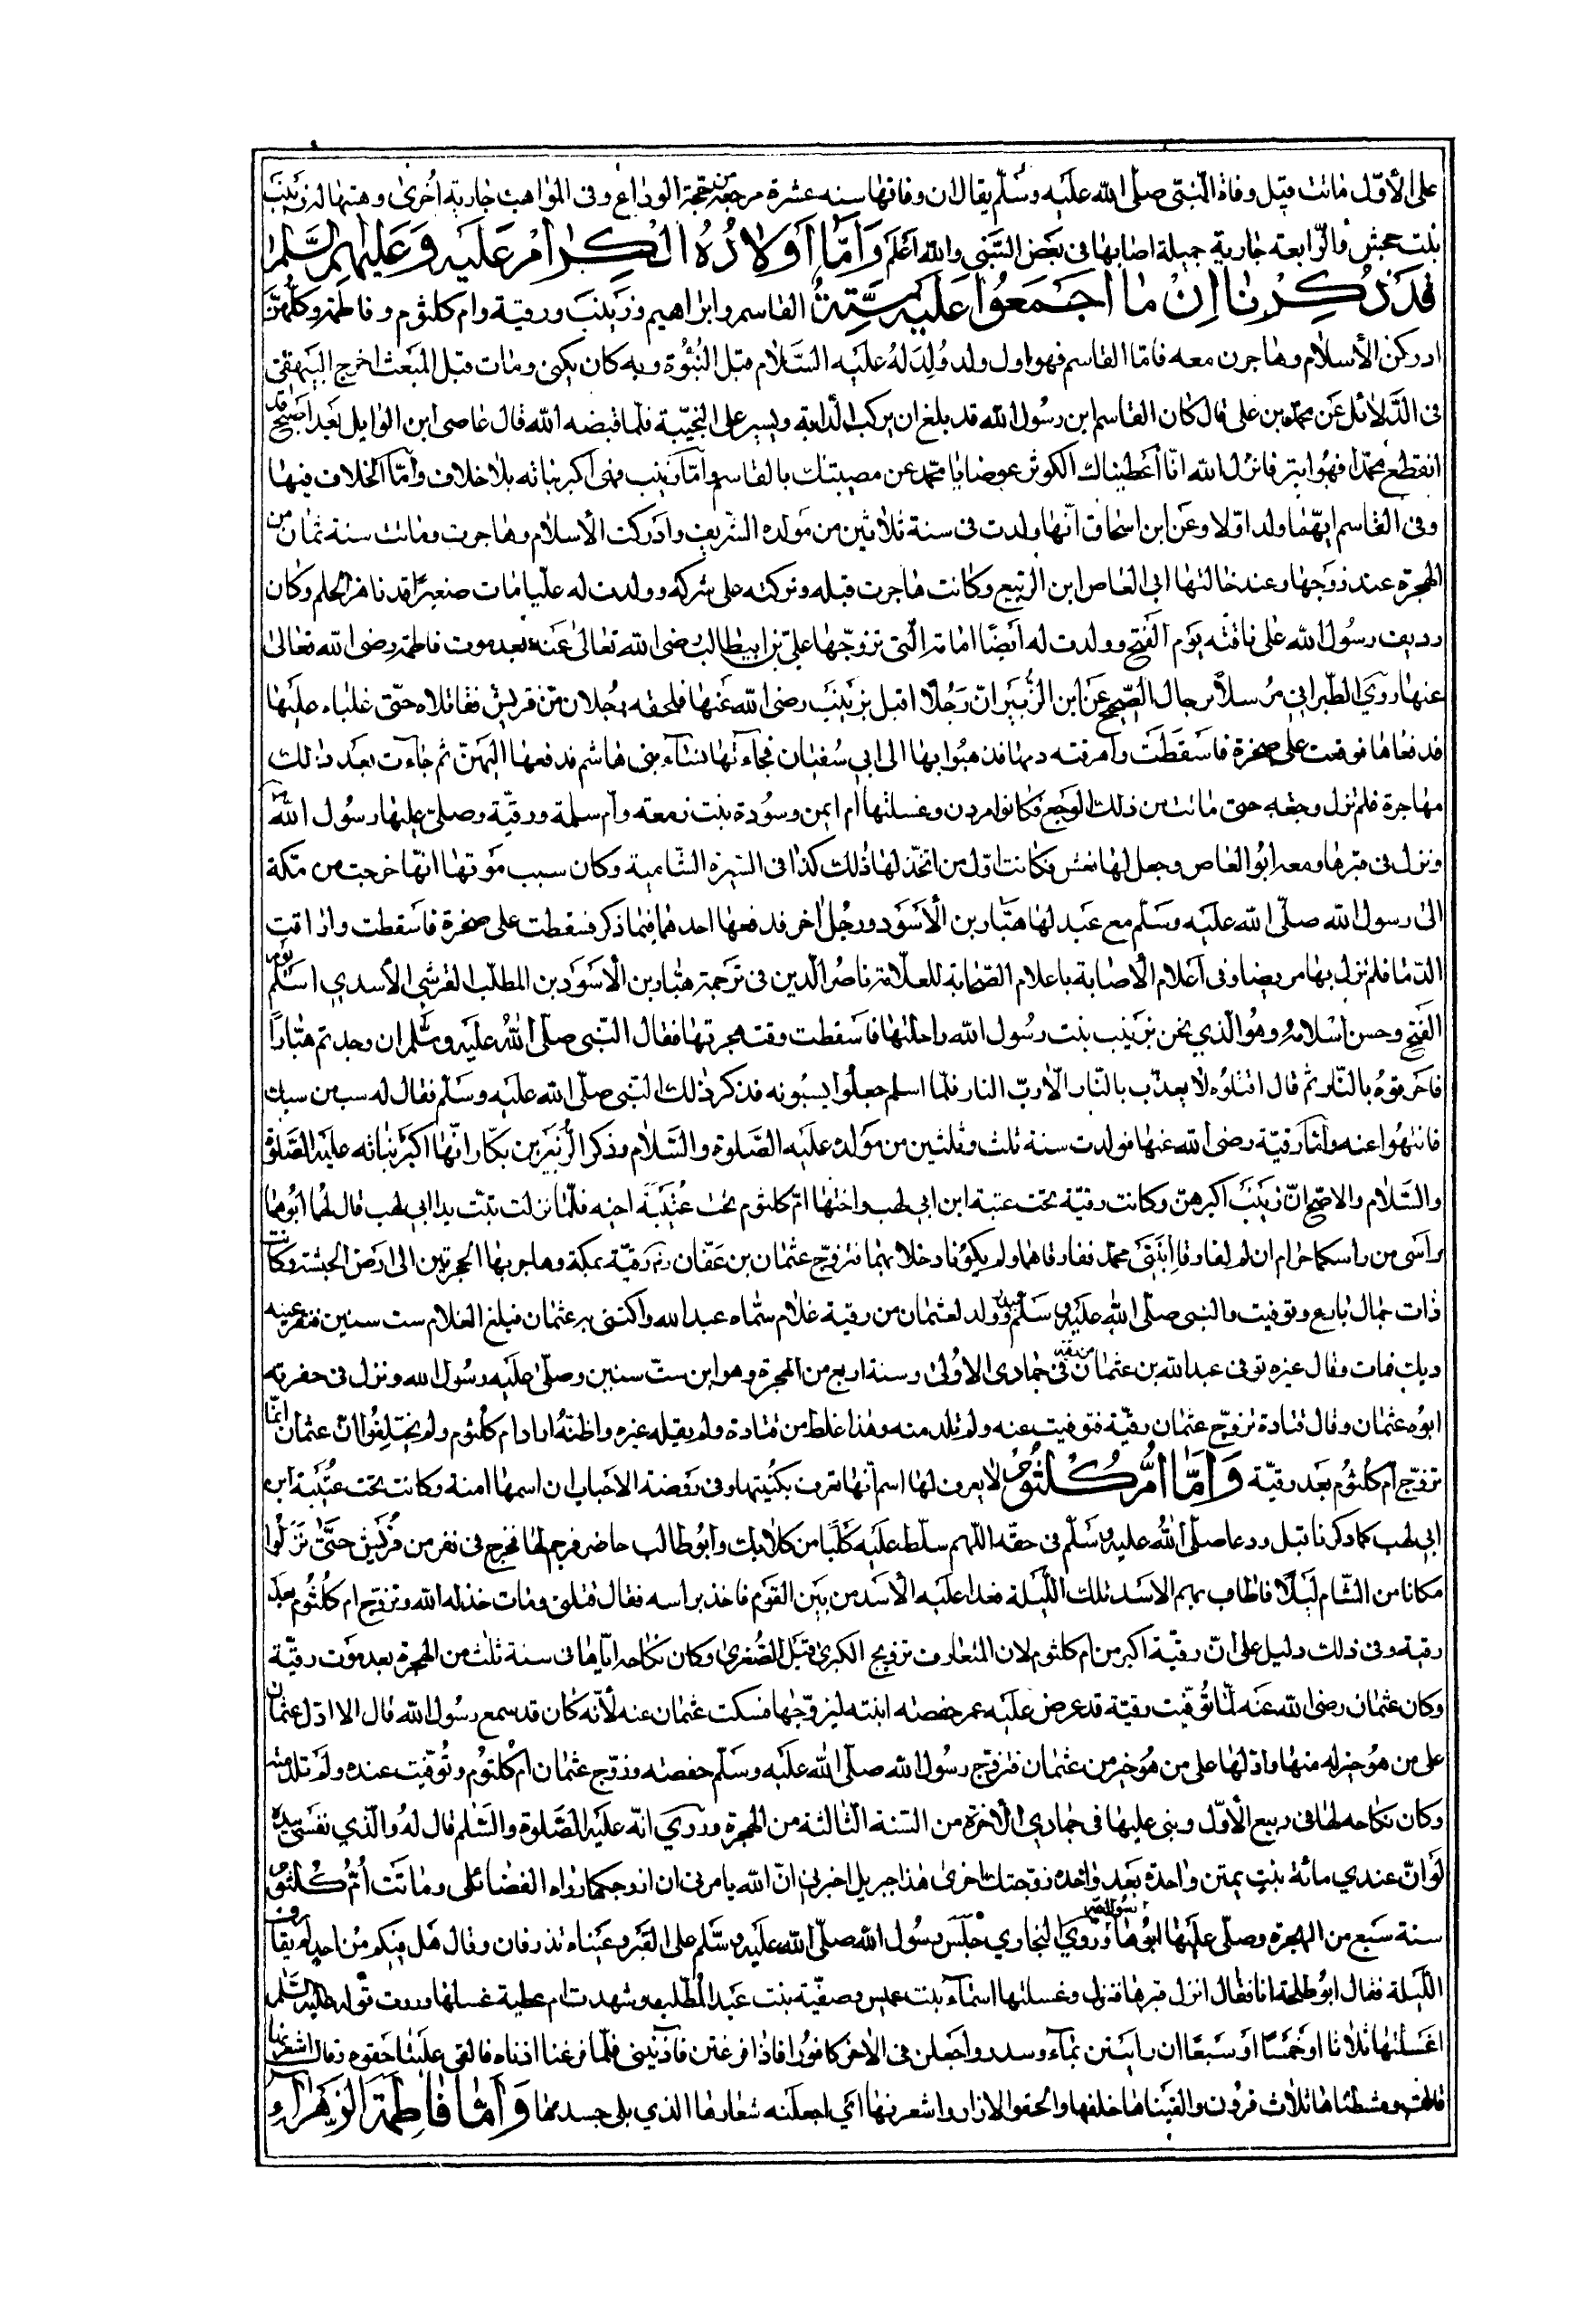 على الأوّل ماتت قبل وفاة النبّي صلّى الله عليه وسلّم يقال ان وفاتها سنه عشرة مرجعه من حجّة الوداع وفي المواهب جارية اُخرى وهبتها له زينب
بنت جحش والرّابعة جارية جميلة اصابها في بعض السّبَي والله اعلم وَامّا اَوْلادُهُ الْكِرامُ عَلَيه وَعَليهِم السَّلام
فَقدْ ذكِرْنا اِنّ ما اجْمَعُوا عَلَيه سِتَّةٌ القاسم وابراهيم وزينب ورقية وام كلثوم وفاطمة وكلّهنّ
ادركن الأسلام وهاجرن معه فامّا القاسم فهو اول ولد وُلِدَ لهُ عليه السّلام قبل النُبُوّة وبه كان يكنى ومات قبل المبعث اخرج البيهقي
في الدّلائل عن محمّد بن على قال كان القاسم ابن رسُول الله قد بلغ ان يركب الدابة ويسير على النجيبة فلمّا قبضه الله قال عاصى ابن الوايل قد اصبح
انقطع محمّد فهُو ابتر فانزل الله انّا أعطيناك الكوثر عوضا يا محمّد عن مصيبتك بالقاسم وامّا زينب فهى اكبر بناته بلا خلاف وامّا الخلاف فيها
وفي القاسم ايّهما ولد اوّلا وعن ابن اسحاق انّها ولدت في سنة ثلاثين من مولده الشريف وادركت الأسلام وهاجرت وماتت سنة ثمان من
الهجرة عند زوجها وعند خالتها ابي العاص ابن الربيع وكانت هاجرت قبله وتركته على شركه وولدت له عليّا مات صغيرًا قد ناهز الحلم وكان
رديف رسُول الله على ناقته يوم الفتح وولدت له ايضًا امامة الّتى تزوّجها علىّ بن ابيطالب رضى الله تعالى عنه بعد موت فاطمة رضى الله تعالى
عنها روي الطبراني مرسلاً برجال الصّحيح عن ابن الزُّبير انّ رَجُلًا اقبل بزينب رضى الله عنها فلحقه رجُلان من قريش فقاتلاه حتّى غلباه عليها
فدفعاها فوقعت على صخرة فاسقطت وأهرقت دمها فذهبُوا بها الى ابي سُفيان فجاءته نسآء بني هاشم فدفعها اليهنّ ثم جاءت بعد ذلك
مهاجرة فلم تزل وجعه حتى ماتت من ذلك الوجع فكانوا يرون وغسلتها ام ايمن وسودة بنت زمعته وام سلمة ورقيّة وصلّى عليها رسُول الله
ونزل في قبرها ومعه ابُو العاص وجعل لها نعش فكانت اوّل من اتّخذ لها ذلك كذا في السّيرة الشّامية وكان سبب موتها انّها خرجت من مكة
الى رسول الله صلّى الله عليه وسلّم مع عبد لها هبّار بن الأسود ورجُل اخر فدفعها احدهما فيما ذكر فسقطت على صخرة فاسقطت واراقت
الدّما فلم تزل بها مريضا وفي اعلام الأصابة باعلام الصّحابة للعلّامة ناصر الدّين في ترجمة هبّار بن الأسود بن المطلّب القرشي الأسدي اسلم يوم
الفتح وحسن اسلامهُ وهُو الّذي نخس بزينب بنت رسُول الله راحلتها فاسقطت وقت هجرتها فقال النّبي صلّى اللهُ عليه وسلّم ان وجدتم هبّارًا
فاحرقوهُ بالنّار ثم قال اقتلُوه لا يعذّب بالنّار الّا ربّ النار فلمّا اسلم جعلُوا يسبُونه فذكر ذلك للنّبي صلّى الله عليه وسلّم فقال له سب من سبك
فانتهُوا عنه وأمّا رقيّة رضى الله عنها فولدت سنة ثلث وثلثين من مَولده عليه الصّلوة والسّلام وذكر الزُّبير بن بكّار انّها اكبر بناته عليه الصّلوة
والسّلام والاصّح انّ زينب اكبرهنّ وكانت رقيّة تحت عتبة ابن ابي لهب واختها امّ كلثوم تحت عُتيبَة اخيه فلمّا نزلت تبّت يدا ابي لهب قال لهُما ابُوهما
راسى من راسكما حرام ان لم تفارقا اِبنَتَى محمّد ففارقاهما ولم يكونا دخلا بهما فتزوّج عثمان بن عفّان رقيّة بمكة وهاجر بها الهجرتين الى ارض الحبشة وكانت
ذات جمال بارع وتوفيت والنبى صلّى الله عليه وسلّم وولد لعثمان من رقية غلام سمّاه عبد الله واكتنى به عثمان فبلغ الغلام ست سنين فنقر عينه
ديك فمات وقال غيره توفى عبد الله بن عثمان من رقيّة في جمادى الاوُلى وسنة اربع من الهجرة وهو ابن ستّ سنين وصلّى عليه رسُول الله ونزل في حفرته
ابوُه عثمان وقال قتادة تزوّج عثمان رقيّة فتوفيت عنه ولم تلد منه وهذا غلط من قتادة ولم يقله غيره واظنّهُ اراد ام كلُثوم ولم يختلفُوا انّ عثمان انّما
تزوّج ام كلثُوم بعد رقيّة وَامّا اُمّ كُلثوم لا يعرف لها اسم انّها تعرف بكُنيتها وفي روضة الاحباب ان اسمها امنة وكانت تحت عُتيبة ابن
ابي لهب كما ذكرنا قبل ودعا صلّى اللهُ عليه وسلّم في حقه اللّهم سلّط عليه كلبًا من كلابك وابُو طالب حاضر فرجم لها فخرج في نفر من قُريش حتّى نزلوا
مكانا من الشّام ليلًا فاطاف بهم الاسد تلك اللّيلة فعدا عليه الأسد من بين القوم فاخذ براسه فقال قتلنى ومات خذله الله وتزوّج ام كُلثُوم بعد
رقية وفي ذلك دليل على انّ رقيّة اكبر من ام كلثوم لان المتعارف تزويج الكبرى قبل الصّغرى وكان نكاحه ايّاها في سنة ثلث من الهجرة بعد موت رقيّة
وكان عثمان رضى الله عنه لمّا تُوُفّيت رقيّة قد عرض عليه عمر حفصته ابنته ليزوّجها فسكت عثمان عنه لأنّه كان قد سمع رسُول الله قال الا ادّل عثمان
على من هُو خير له منها وادلها على من هُو خير من عثمان فتزوّج رسُول الله صلّى الله عليه وسلّم حفصته وزوّج عثمان ام كُلثوُم وتُوفّيت عنده ولم تلد منه
وكان نكاحه لها في ربيع الأوّل وبنى عليها في جمادي الآخرة من السّنة الثّالثة من الهجرة وروي انّه عليه الصّلوة والسّلام قال لهُ والّذي نفسى بيده
لَو انّ عندي مائة بنتٍ يمتن واحدة بعد واحدة زوّجتك اخرى هذا جبريل اخبرني انّ الله يامرنى ان ازوجكها رواه الفضائلى وماتت اُمّ كُلثوم
سنة سبع من الهجرة وصلّى عليها ابُوها وروي البخاري جلس رسُول الله صلّى الله عليه وسلّم على القبر وعيناه تذرفان وقال هل فيكم مِن احد لم يقارف
اللّيلة فقال ابُو طلحة انا فقال انزل قبرها فنزل وغسلتها اسماء بنت عميس وصفيّة بنت عبد المُطّلب وشهدت ام عطية غسلها وروت قوله عليه السّلام
اغسلنها ثلاثا او خَمسًا او سبعًا ان رايتن بمآء وسدر واجعلن في الاخر كافورًا فاذا فرغتن فآذنّني فلمّا فرغنا اذناه فالقى علينا حقوه وقال اشعرنها
قالت ومشطناها ثلاث قرون والقيناها خلفها والحقو الازار واشعرنها اي اجعلنه شعارها الذي يلى جسدها وَامّا فاطمة الزهراء